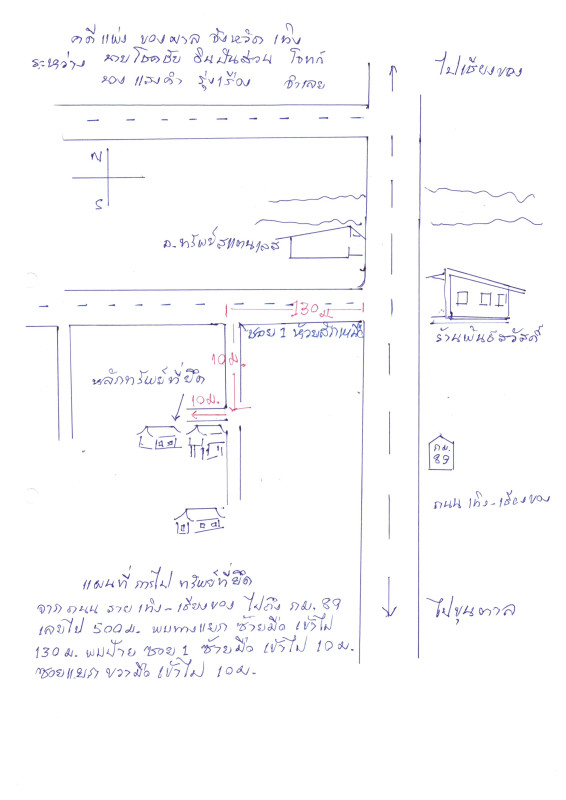 คดีแพ่ง ของศาล จังหวัด เทิง
ระหว่าง นายโชคชัย ยืนปั่นส่วน โจทก์
แสงคำ รุ่งเรือง จำเลย
ไปเชียงของ
N
S
อ.ทรัพย์สแตนเลส
130 ม.
ซอย 1 ห้วยสัก
ร้านพันธ์สวัสดิ์
10 ม.
หลักทรัพย์ที่ยึด
10 ม.
กม.
89
ถนน เทิง - เชียงของ
แผนที่ การไป ทรัพย์ที่ยึด
จาก ถนน สาย เทิง - เชียงของ ไปถึง กม. 89
เลยไป 500 ม. พบทางแยก ซ้ายมือ เข้าไป
130 ม. พบป้าย ซอย 1 ซ้ายมือ เข้าไป 10 ม.
ซอยแยก ขวามือ เข้าไป 10 ม.
ไปขุนตาล